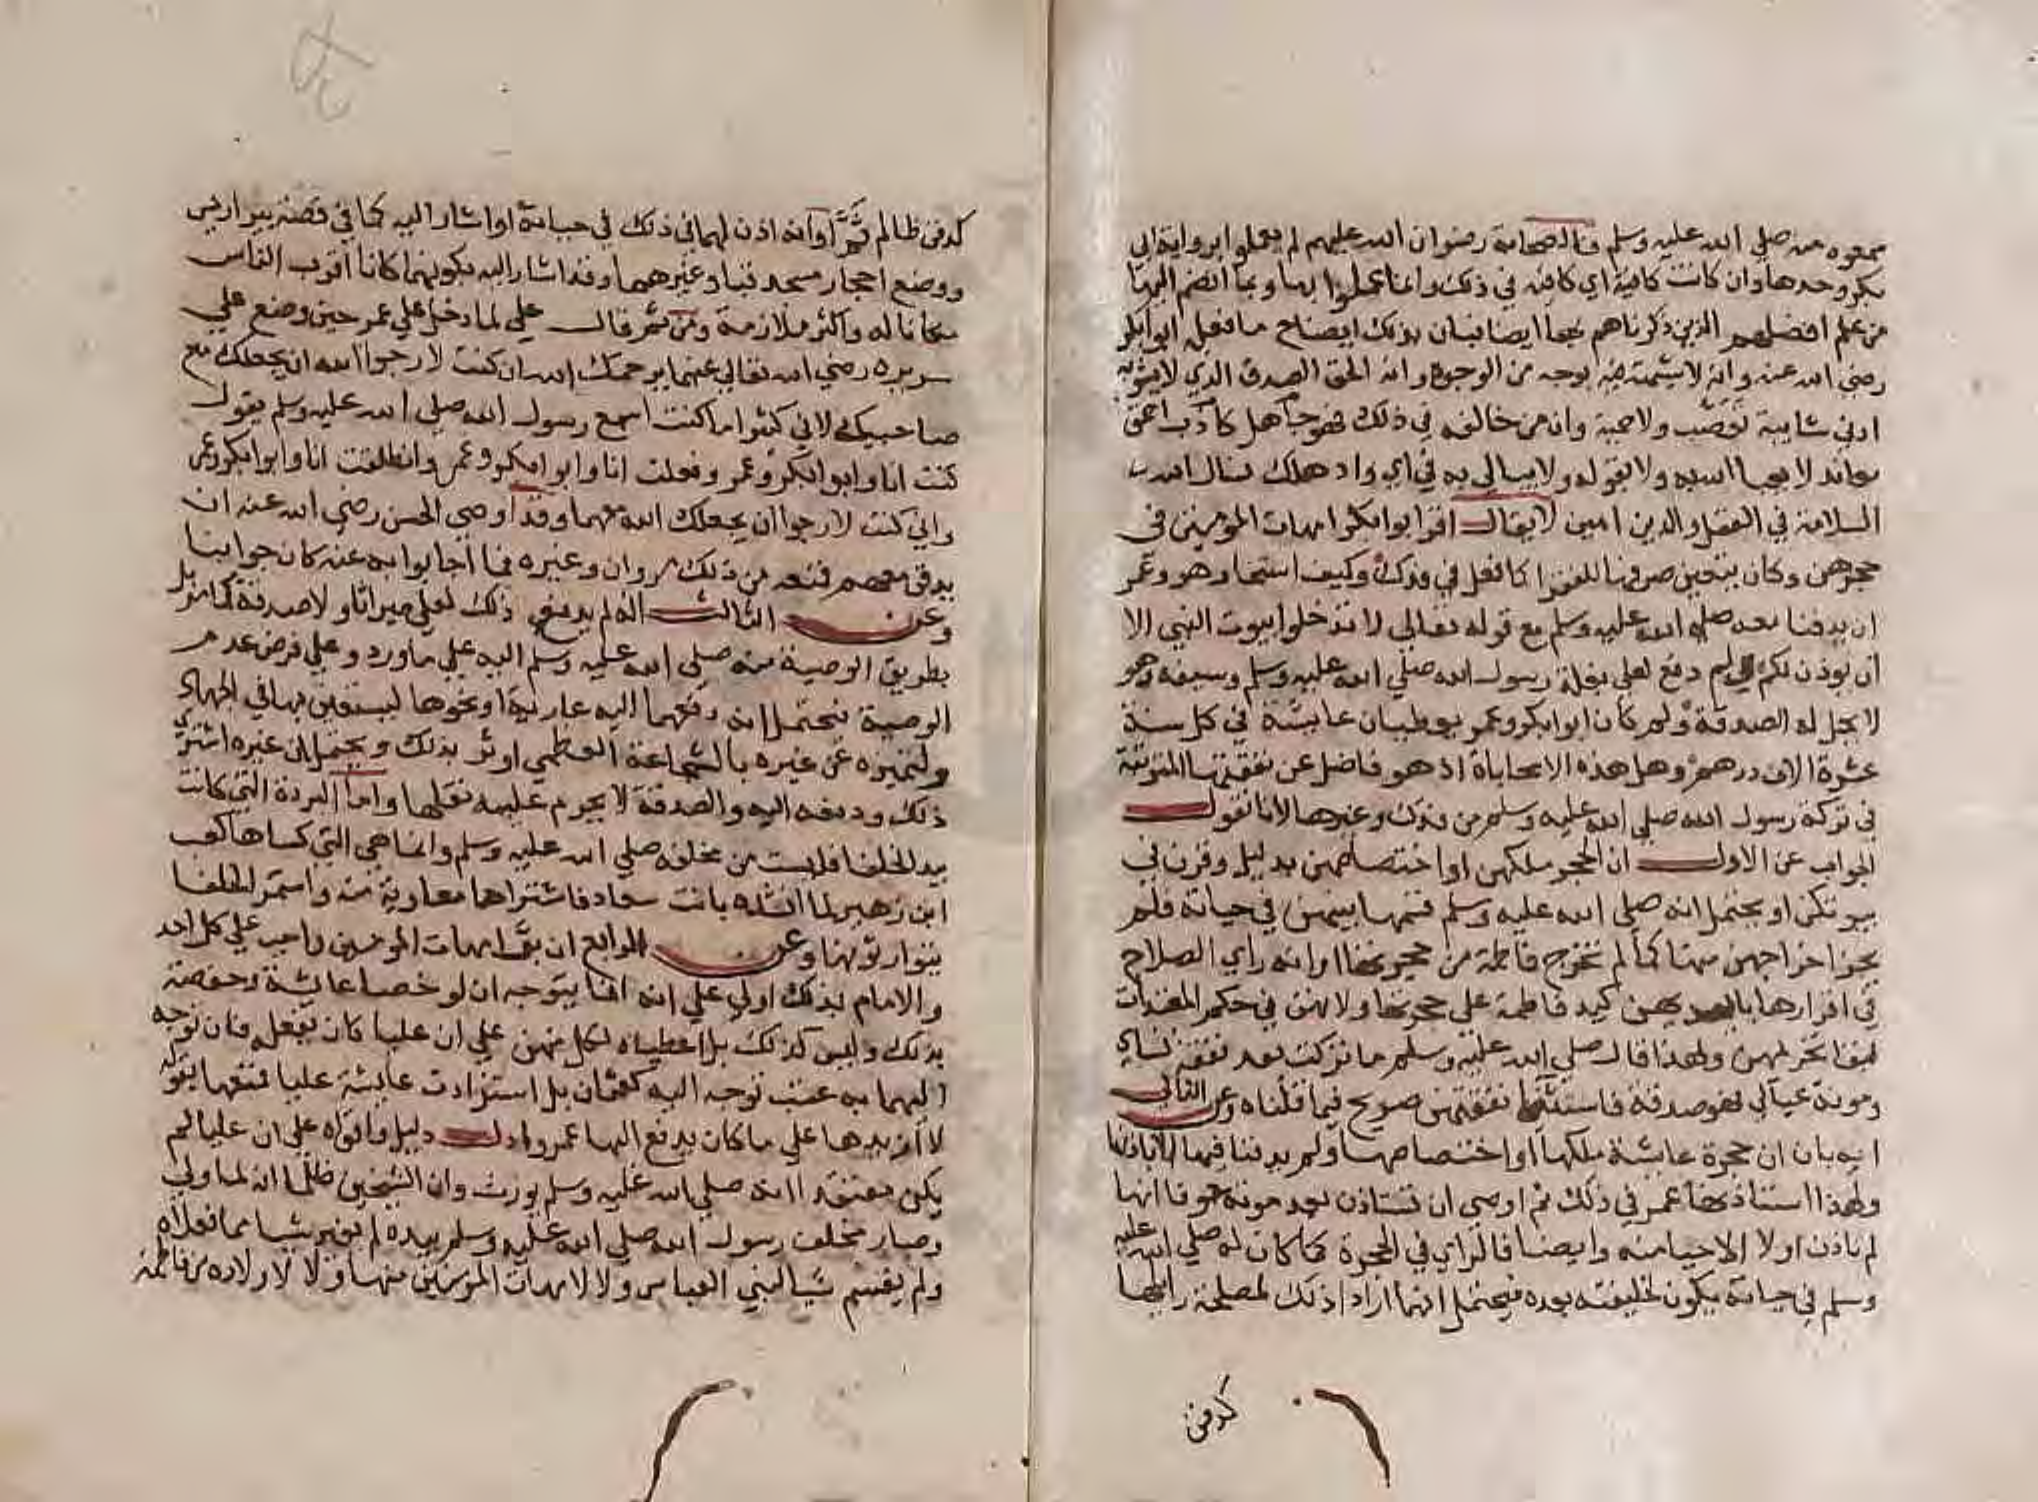 سمعوه منه صلي الله عليه وسلم فالصحابة رضوان الله عليهم لم يعملوا برواية ابي
بكر وحدها وان كانت كافية اي كافية في ذلك وانما عملوا بها وبما انضم اليها
من علم افضلهم الذين ذكرناهم بها ايضا فبان بذلك ايضاح ما فعله ابو بكر
رضي الله عنه وانه لا شبهة فيه بوجه من الوجوه وانه الحق الصدق الذي لا يشوبه
ادني شايبة تعصب ولا حمية وان من خالفه في ذلك فهو جاهل كاذب احمق
معاند لا يعبا الله به ولا بقوله ولا يبالي به في اي واد هلك نسال الله
السلامة في العقل والدين امين لا يقال اقر ابو بكر امهات المومنين في
حجرهن وكان يتعين صرفها للفقرا كما فعل في فدك وكيف استجاز هو وعمر
ان يدفنا معه صلي الله عليه وسلم مع قوله تعالي لا تدخلوا بيوت النبي الا
ان يوذن لكم ولم دفع لعلي بغلة رسول الله صلي الله عليه وسلم وسيفه وهو
لا يحل له الصدقة ولم كان ابو بكر وعمر يعطيان عايشة في كل سنة
عشرة الاف درهم وهل هذه الا محاباة اذ هو فاضل عن نفقتها
في تركة رسول الله صلي الله عليه وسلم من فدك وغيرها لانا نقول
الجواب عن الاول ان الحجر ملكهن او اختصاصهن بدليل وقرن في
بيوتكن او يحتمل انه صلي الله عليه وسلم قسمها بينهن في حياته فلم
يجز اخراجهن منها كما لم تخرج فاطمة من حجرتها او انه راي الصلاح
في اقرارها بايديهن كيد فاطمة علي حجرتها ولانهن في حكم المعتدات
لبقا تحريمهن ولهذا قال صلي الله عليه وسلم ما تركت بعد نفقة نساي
ومونة عيالي فهو صدقة فاستثنا نفقتهن صريح فيما قلناه وعن الثاني
انه بان ان حجرة عايشة ملكها او اختصاصها ولم يدفنا فيها الا باذنها
ولهذا استاذنها عمر في ذلك ثم اوصي ان تستاذن بعد موته خوفا انها
لم تاذن اولا الا حيا منه وايضا فالراي في الحجرة كما كان له صلي الله عليه
وسلم في حياته يكون لخليفته بعده فيحتمل انهما ارادا ذلك لمصلحة راياها
كدفن
كدفن ظالم ثم او انه اذن لهما في ذلك في حياته او اشار اليه كما في قصة بير اريس
ووضع احجار مسجد قبا وغيرهما وقد اشار اليه بكونهما كانا اقرب الناس
مكانا له واكثر ملازمة ومن ثم قال علي لما دخل علي عمر حين وضع علي
سريره رضي الله تعالي عنهما يرحمك الله ان كنت لارجوا الله ان يجعلك مع
صاحبيك لاني كثيرا ما كنت اسمع رسول الله صلي الله عليه وسلم يقول
كنت انا وابو بكر وعمر وفعلت انا وابو بكر وعمر وانطلقت انا وابو بكر وعمر
واني كنت لارجوا ان يجعلك الله معهما وقد اوصي الحسن رضي الله عنه ان
يدفن معهم فمنعه من ذلك مروان وغيره فما اجابوا به عنه كان جوابنا
وعن الثالث انه لم يدفع ذلك لعلي ميراثا ولا صدقة بل
بطريق الوصية منه صلي الله عليه وسلم اليه علي ما ورد وعلي فرض عدم
الوصية فيحتمل انه دفعهما اليه عارية او نحوها ليستعين بها في الجهاد
ولتميزه عن غيره بالشجاعة العظمي اوثر بذلك ويحتمل ان غيره اشتري
ذلك ودفعه اليه والصدقة لا يحرم عليه نفلها واما البردة التي كانت
بيد الخلفا فليست من مخلفه صلي الله عليه وسلم وانما هي التي كساها كعب
ابن زهير لما انشده بانت سعاد فاشتراها معاوية منه واستمر الخلفا
يتوارثونها وعن الرابع ان نفقة امهات المومنين واجب علي كل احد
والامام بذلك اولي علي انه انما يتوجه ان لو خصا عايشة وحفصة
بذلك وليس كذلك بل اعطياه لكل منهن علي ان عليا كان يفعله فان توجه
اليهما به عتب توجه اليه كعثمان بل استزادت عايشة عليا فمنعها بقوله
لا ازيدها علي ما كان يدفع اليها عمر وادل دليل واقواه علي ان عليا لم
يكن معتقدا انه صلي الله عليه وسلم يورث وان الشيخين ظلما انه لما ولي
وصار مخلف رسول الله صلي الله عليه وسلم بيده لم يغير شيا مما فعلاه
ولم يقسم شيا لبني العباس ولا لامهات المومنين منها ولا لاولاده من فاطمة